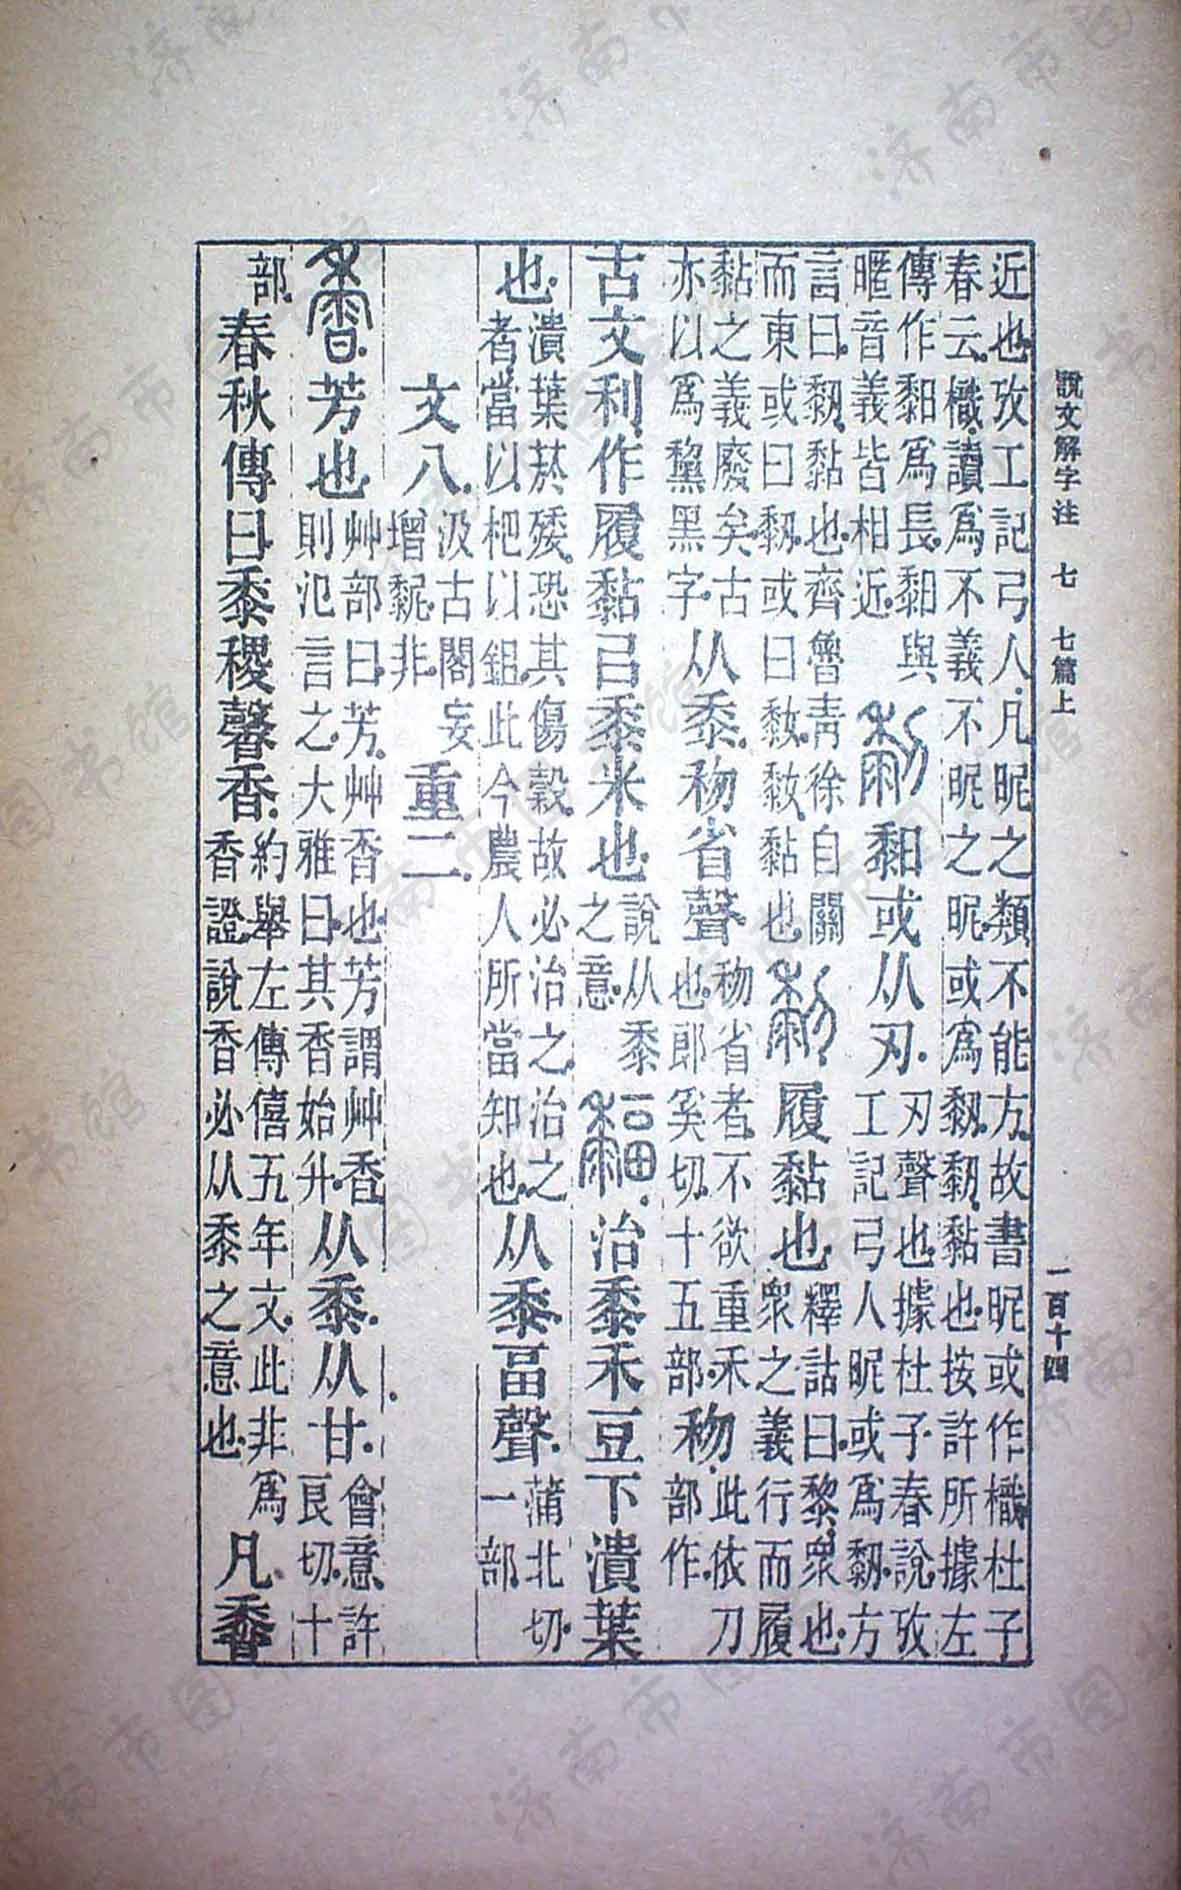 說文解字注 七 七篇上 一百十四
近也攷工記弓人.凡昵之類不能方.故書昵或作樴杜子
春云.樴.讀爲不義不昵之昵.或爲䵒.䵒.黏也.按許所據左
傳作䵑爲長.䵑與
暱音義皆相近.
䵑或从刃.
刃聲也.據杜子春說.攷
工記弓人昵或爲䵒.方
言曰.䵒.黏也.齊魯靑徐自關
而東或曰䵒.或曰䵖.䵖黏也.
履黏也.
釋詁曰.黎.衆也.
衆之義行而履
黏之義廢矣.古
亦以爲黧黑字.
从黍.𥝤省聲.
𥝤省者.不欲重禾
也.郎奚切.十五部.
𥝤.
此依刀
部作.
古文利.作履黏㠯黍米也.
說从黍
之意.
治黍禾豆下潰葉
也.
潰葉菸矮.恐其傷穀.故必治之.治之
者.當以杷以鉏.此今農人所當知也.
从黍畐聲.
蒲北切.
一部.
文八.
汲古閣妄
增䵜.非.
重二.
芳也
艸部曰.芳.艸香也.芳謂艸香.
則氾言之.大雅曰.其香始升.
从黍.从甘.
會意.許
良切.十
部.
春秋傳曰黍稷馨香.
約舉左傳僖五年文.此非爲
香證.說香必从黍之意也.
凡𪏰